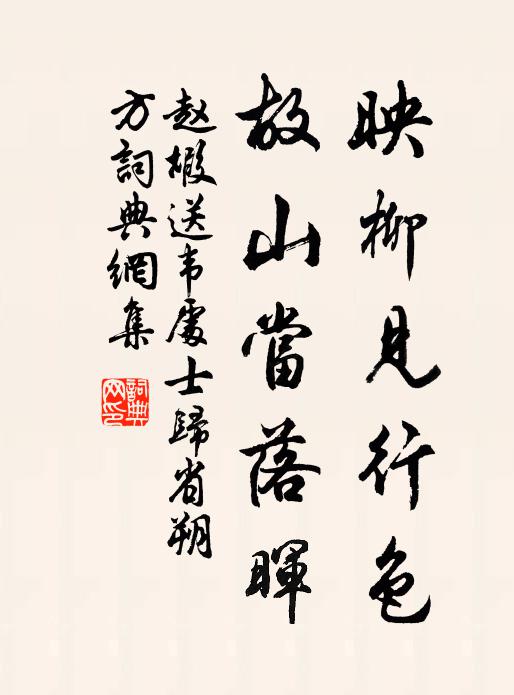 映柳見行色
故山當落暉
赵嘏送韦處士歸省朔
方詞典網集
詞典网印